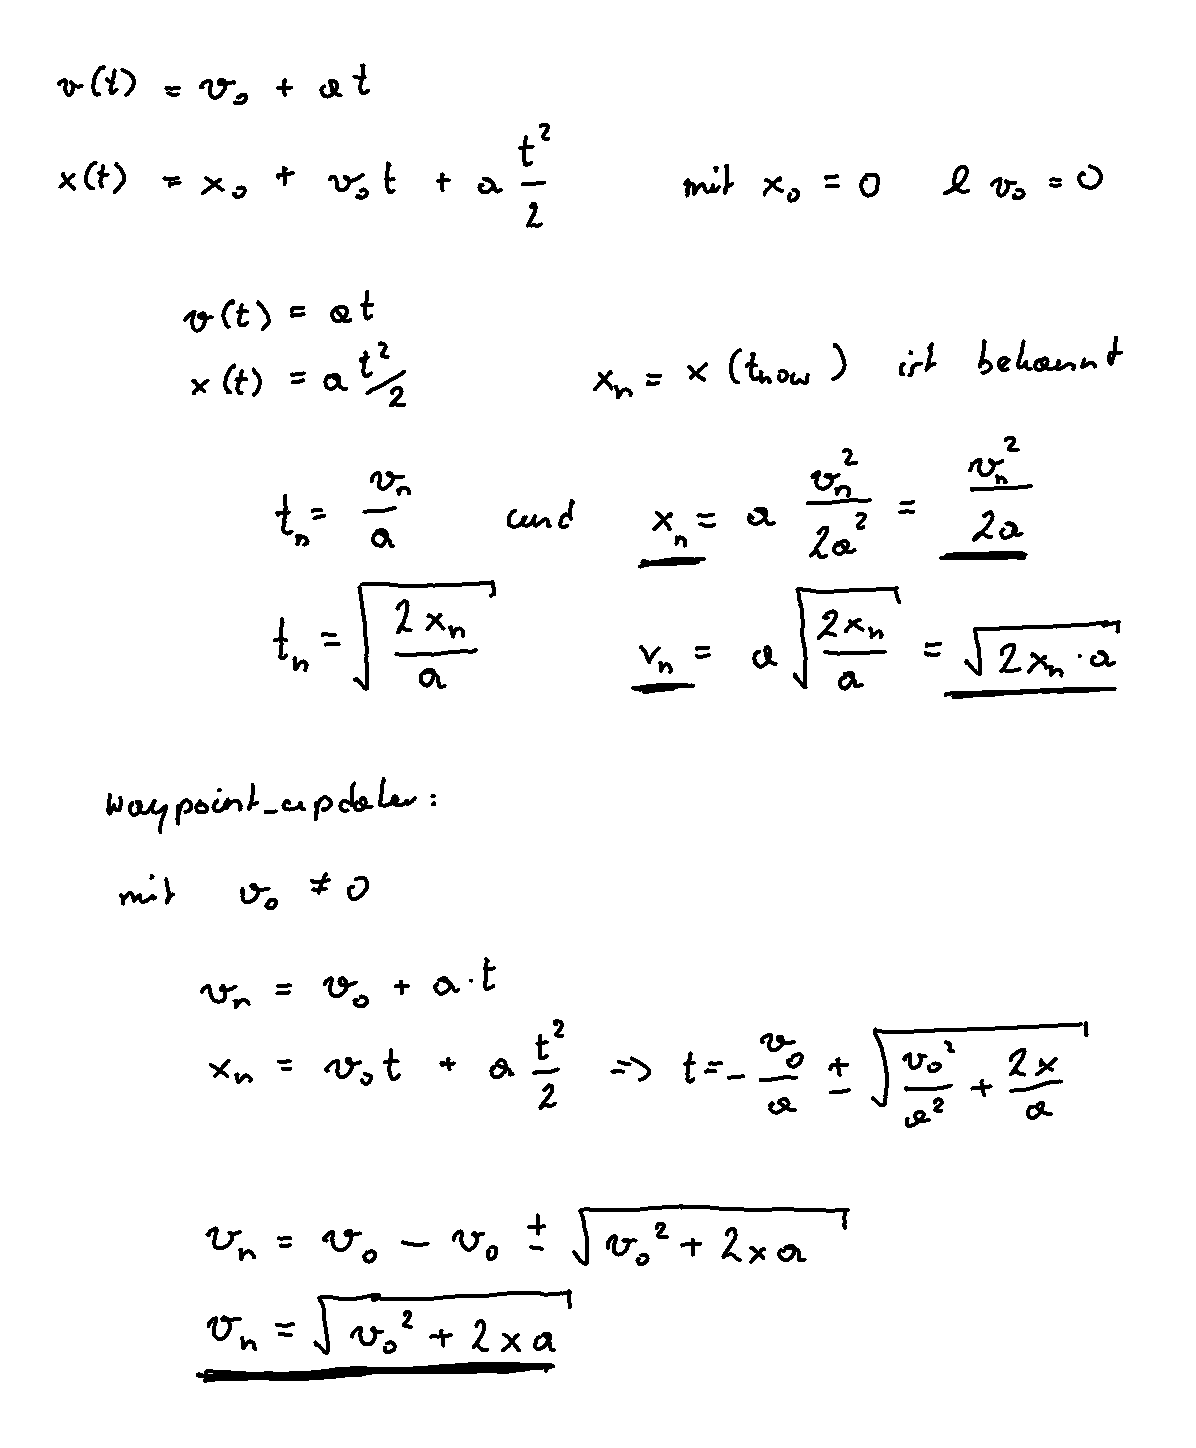 v(t) = v₀ + at
x(t) = x₀ + v₀t + a t²/2 mit x₀ = 0 & v₀ = 0
v(t) = at
x(t) = a t²/2 xₙ = x(t_now) ist bekannt
tₙ = vₙ/a und xₙ = a vₙ²/2a² = vₙ²/2a
tₙ = √(2xₙ/a) vₙ = a √(2xₙ/a) = √(2xₙ·a)
Waypoint_updater:
mit v₀ ≠ 0
vₙ = v₀ + a·t
xₙ = v₀t + a t²/2 => t = - v₀/a ± √(v₀²/a² + 2x/a)
vₙ = v₀ - v₀ ± √(v₀² + 2xa)
vₙ = √(v₀² + 2xa)